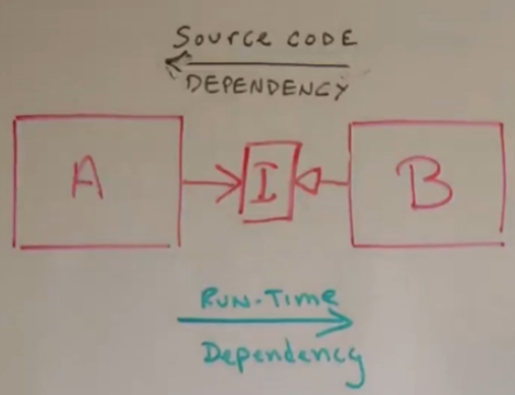 Source code
DEPENDENCY
A I B
Run-Time
Dependency